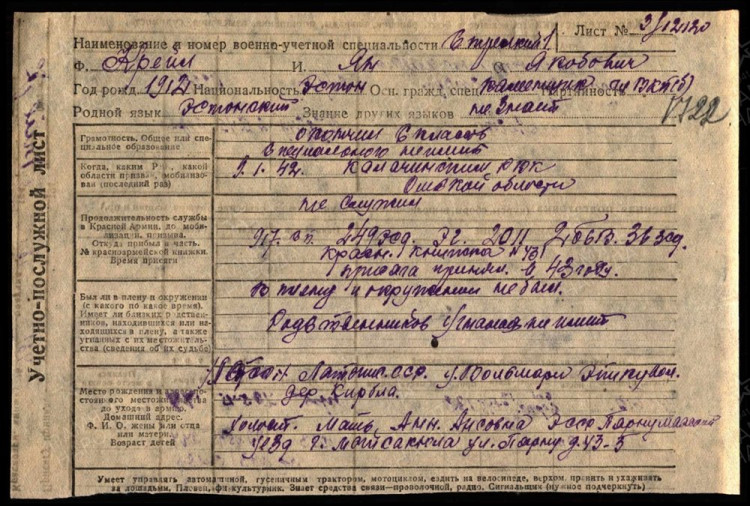 Лист № 3/12120
Наименование и номер военно-учетной специальности Стрелкий 1
Ф. Крейл И. Ян О. Якобович
Год рожд. 1912 Национальность Эстон Осн. гражд. спец. каменщик Партийность
Родной язык Эстонский Знание других языков не знает 1722
Учетно-послужной лист
Грамотность. Общее или специальное образование
окончил 6 классов
специального не имеет
Когда, каким РВК, какой области призван, мобилизован (последний раз)
9.1.42. Калачинским РВК
Омской области
Продолжительность службы в Красной Армии, до мобилизации, призыва. Откуда прибыл в часть. № красноармейской книжки. Время присяги
не служил
917 с.п. 249 э.с.д.
Красн. книжка №
присяга принял. в 43 году.
Был ли в плену и окружении (с какого по какое время). Имеет ли близких родственников, находившихся или находящихся в плену, а также угнанных с их местожительства (сведения об их судьбе)
В плену и окружении не был.
Родственников угнанных не имеет
Место рождения и постоянного местожительства до ухода в армию. Домашний адрес. Ф. И. О. жены или отца или матери. Возраст детей
Латвыс. сср. у. Вольмари
дер.
Холост. Мать, Анн, Ансовна Эсср Пярнумааский
уезд г. Мыйсакюла ул. Пярну д. 43-5
Умеет управлять автомашиной, гусеничным трактором, мотоциклом, ездить на велосипеде, верхом, править и ухаживать за лошадьми. Пловец, физкультурник. Знает средства связи—проволочной, радио. Сигнальщик (нужное подчеркнуть)